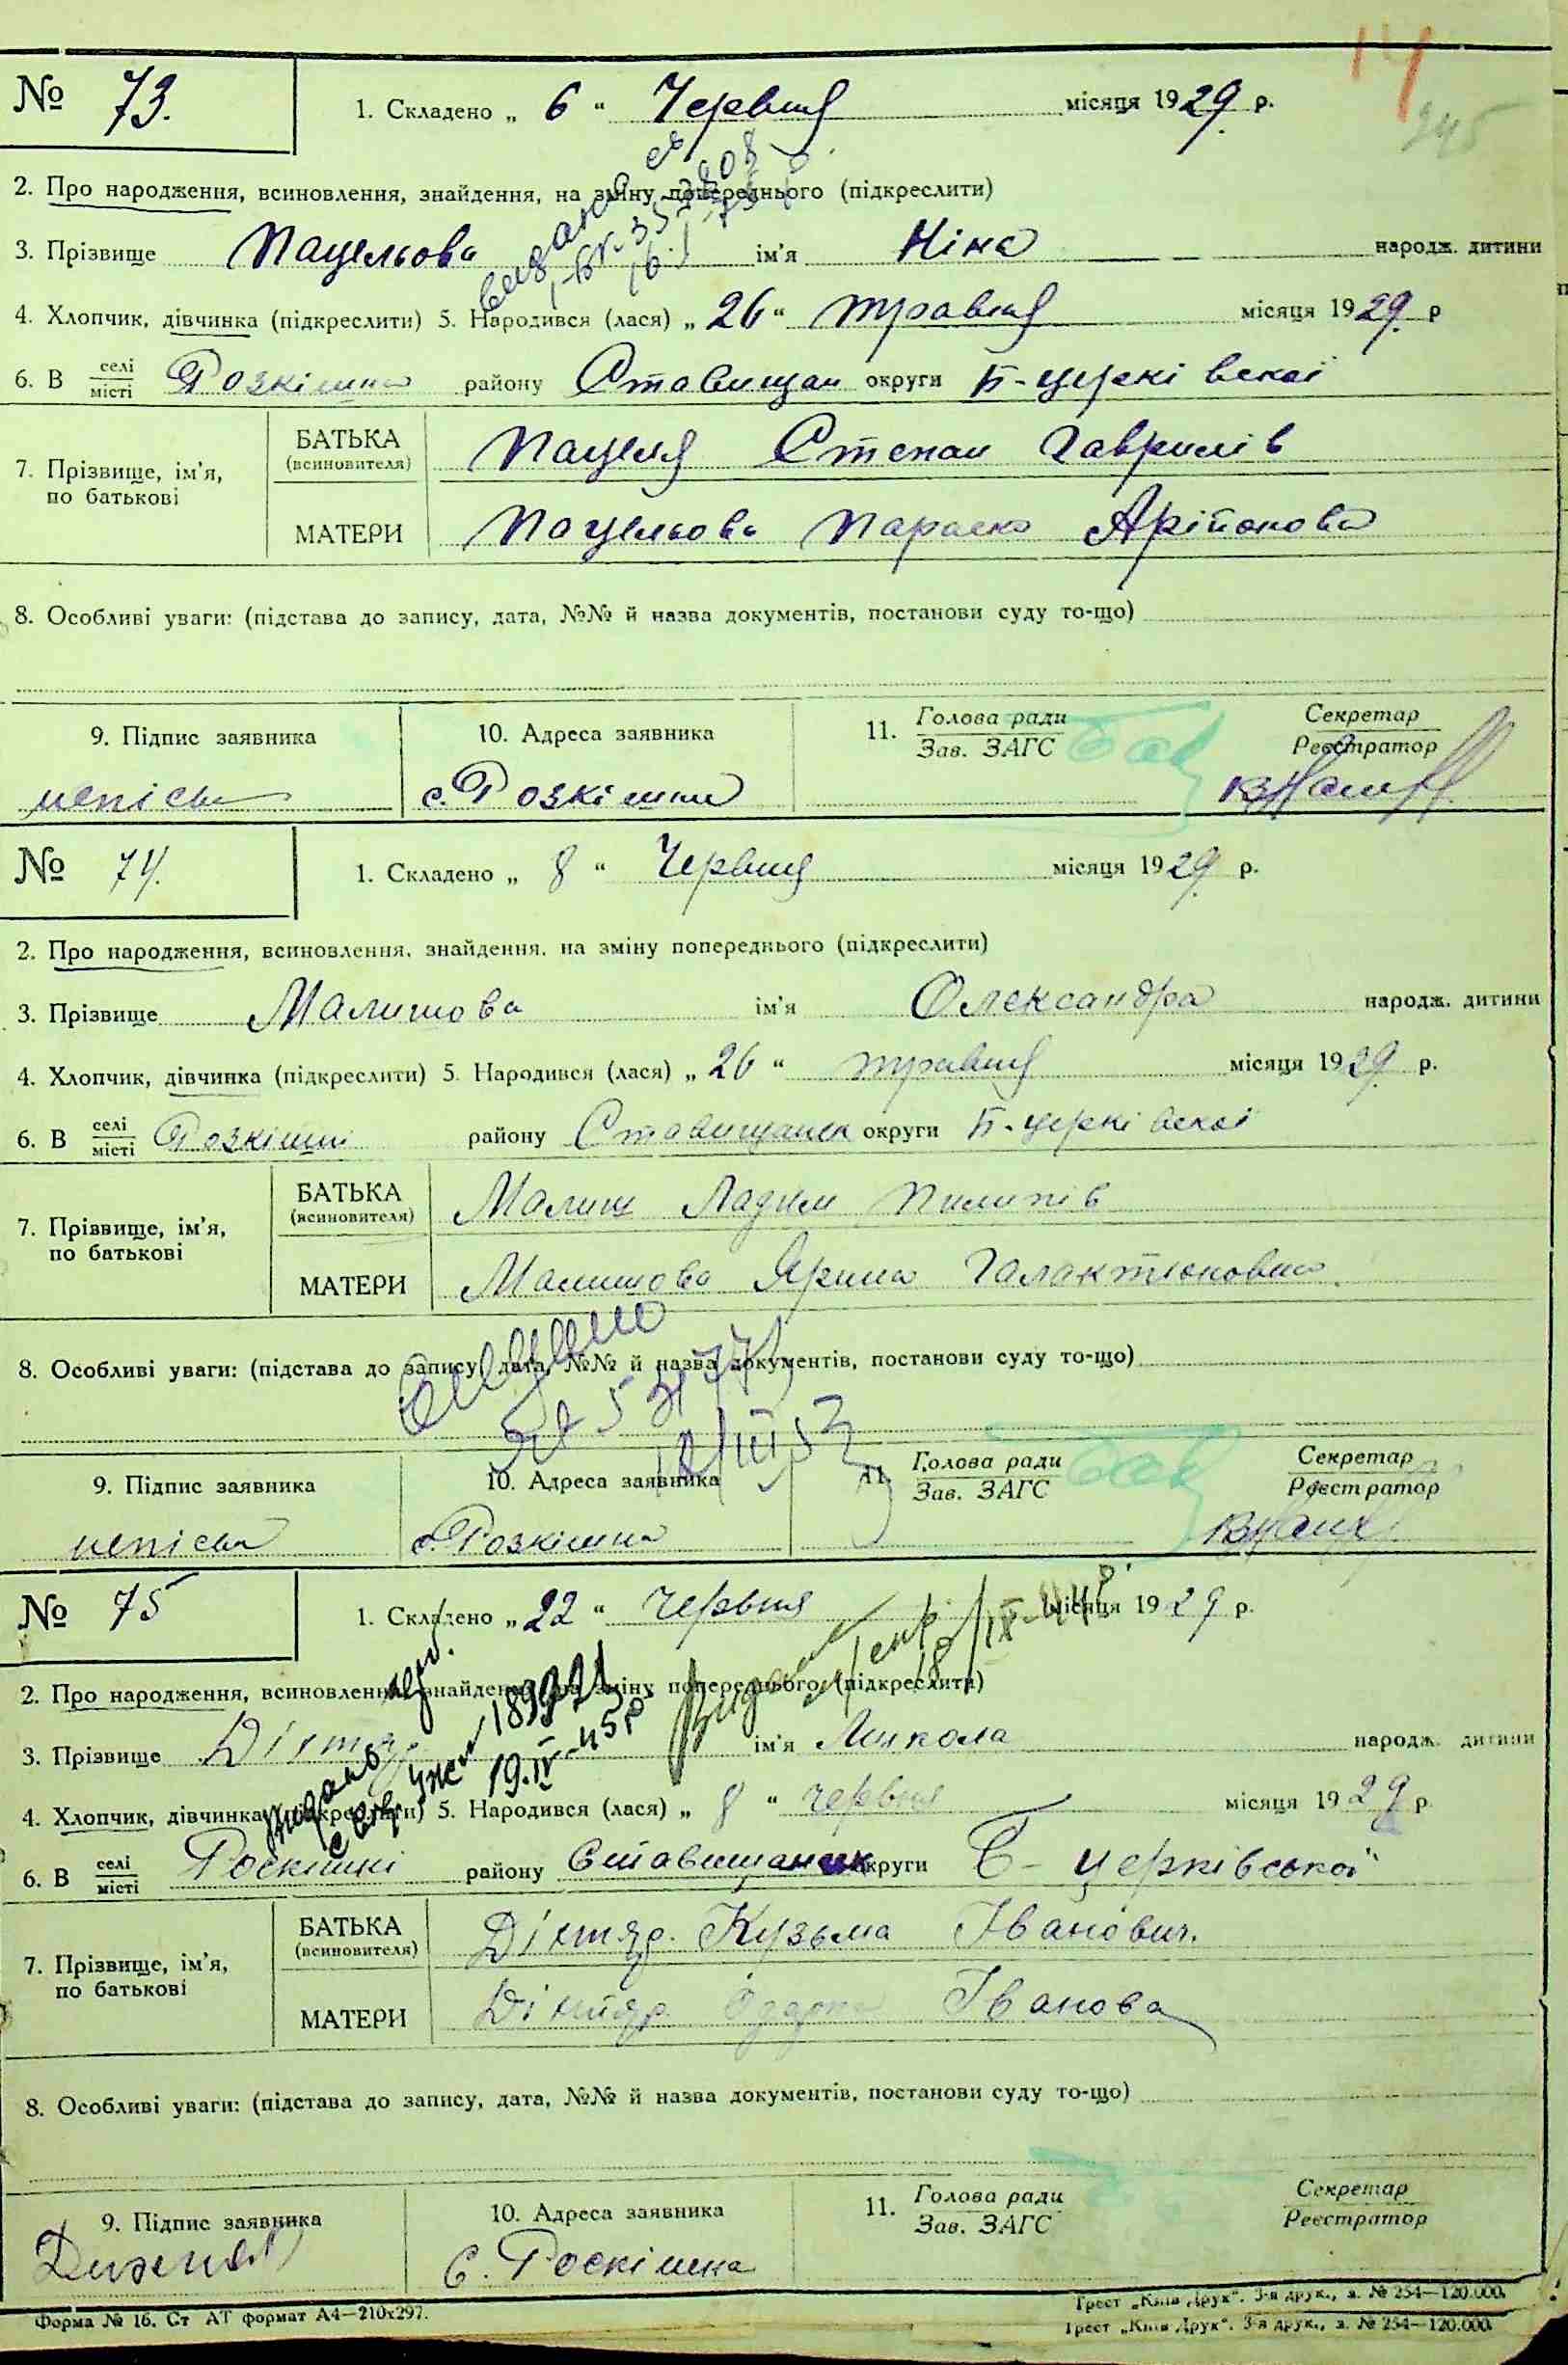 № 73. 1. Складено „ 6 “ Червня місяця 1929. р.
2. Про народження, всиновлення, знайдення, на зміну попереднього (підкреслити)
3. Прізвище Пацельова ім'я Ніна народж. дитини
4. Хлопчик, дівчинка (підкреслити) 5. Народився (лася) „ 26 “ травня місяця 1929. р
6. В селі/місті Розкішна району Ставищан округи Б-церківскої
7. Прізвище, ім'я, по батькові
БАТЬКА (всиновителя) Пацеля Степан Гаврилів
МАТЕРИ Пацельова Параска
8. Особливі уваги: (підстава до запису, дата, №№ й назва документів, постанови суду то-що)
9. Підпис заявника 10. Адреса заявника 11. Голова ради Зав. ЗАГС Секретар Реєстратор
непісьм с. Розкішна
№ 74. 1. Складено „ 8 “ Червня місяця 1929. р.
2. Про народження, всиновлення, знайдення, на зміну попереднього (підкреслити)
3. Прізвище Малишова ім'я Олександра народж. дитини
4. Хлопчик, дівчинка (підкреслити) 5. Народився (лася) „ 26 “ травня місяця 1929. р.
6. В селі/місті Розкішні району Ставищанск округи Б-церківскої
7. Прізвище, ім'я, по батькові
БАТЬКА (всиновителя) Малиш Пилипів
МАТЕРИ Малишова Ярина Галактионовна
8. Особливі уваги: (підстава до запису, дата, №№ й назва документів, постанови суду то-що)
9. Підпис заявника 10. Адреса заявника 11. Голова ради Зав. ЗАГС Секретар Реєстратор
непісьм с. Розкішна
№ 75 1. Складено „ 22 “ червня місяця 1929 р.
2. Про народження, всиновлення, знайдення, на зміну попереднього (підкреслити)
3. Прізвище Діктяр ім'я Микола народж. дитини
19.IV-45р
4. Хлопчик, дівчинка (підкреслити) 5. Народився (лася) „ 8 “ червня місяця 1929 р.
6. В селі/місті Роскішні району Ставищанск округи Б-церківської
7. Прізвище, ім'я, по батькові
БАТЬКА (всиновителя) Діктяр. Кузьма Іванович.
МАТЕРИ Діктяр Одарка Іванова
8. Особливі уваги: (підстава до запису, дата, №№ й назва документів, постанови суду то-що)
9. Підпис заявника 10. Адреса заявника 11. Голова ради Зав. ЗАГС Секретар Реєстратор
с. Роскішна
Форма № 16. Ст АТ формат А4—210х297.
Трест „Київ Друк“. 3-я друк., з. № 254—120.000.
Трест „Київ Друк“. 3-я друк., з. № 254—120.000.